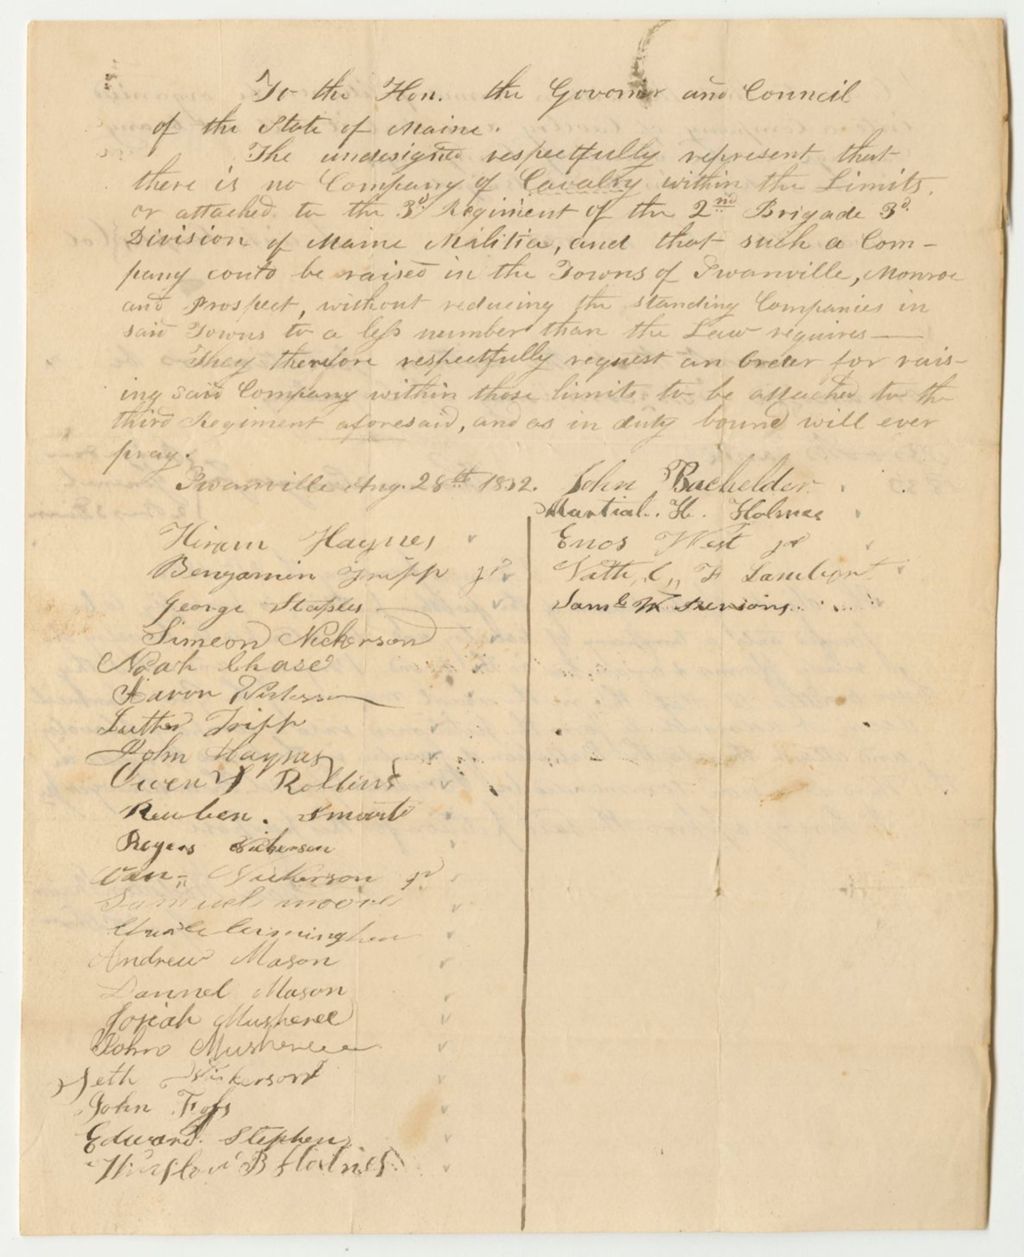 To the Hon. the Govonor and Council
of the State of Maine.
The undesigned respectfully represent that
there is no Company of Cavalry within the Limits
or attached to the 3d. Regiment of the 2nd Brigade 3d.
Division of Maine Militia, and that such a Com-
pany could be raised in the Towns of Swanville, Monroe
and Prospect, without reducing the standing Companies in
said Towns to a less number than the Law requires—
They therefore respectfully request an order for rais-
ing said Company within those limits to be attached to the
third Regiment aforesaid, and as in duty bound will ever
pray.
Swanville Aug. 28th 1832.
John Bachelder
Martial. H. Holmes
Enos West jr
Nath, C,, F Lambert
Saml W
Hiram Haynes
Benjamin Tripp jr
George Staples
Simeon Nickerson
Noah Chase
Aaron Nickerson
Luther Tripp
John Haynes
Owen Rollins
Reuben. Smart
Nickerson
Nickerson jr
Samuel moore
Andrew Mason
Dannel Mason
Josiah
John
Seth Nickerson
John Foss
Edward. Stephens
Winslow B Holmes